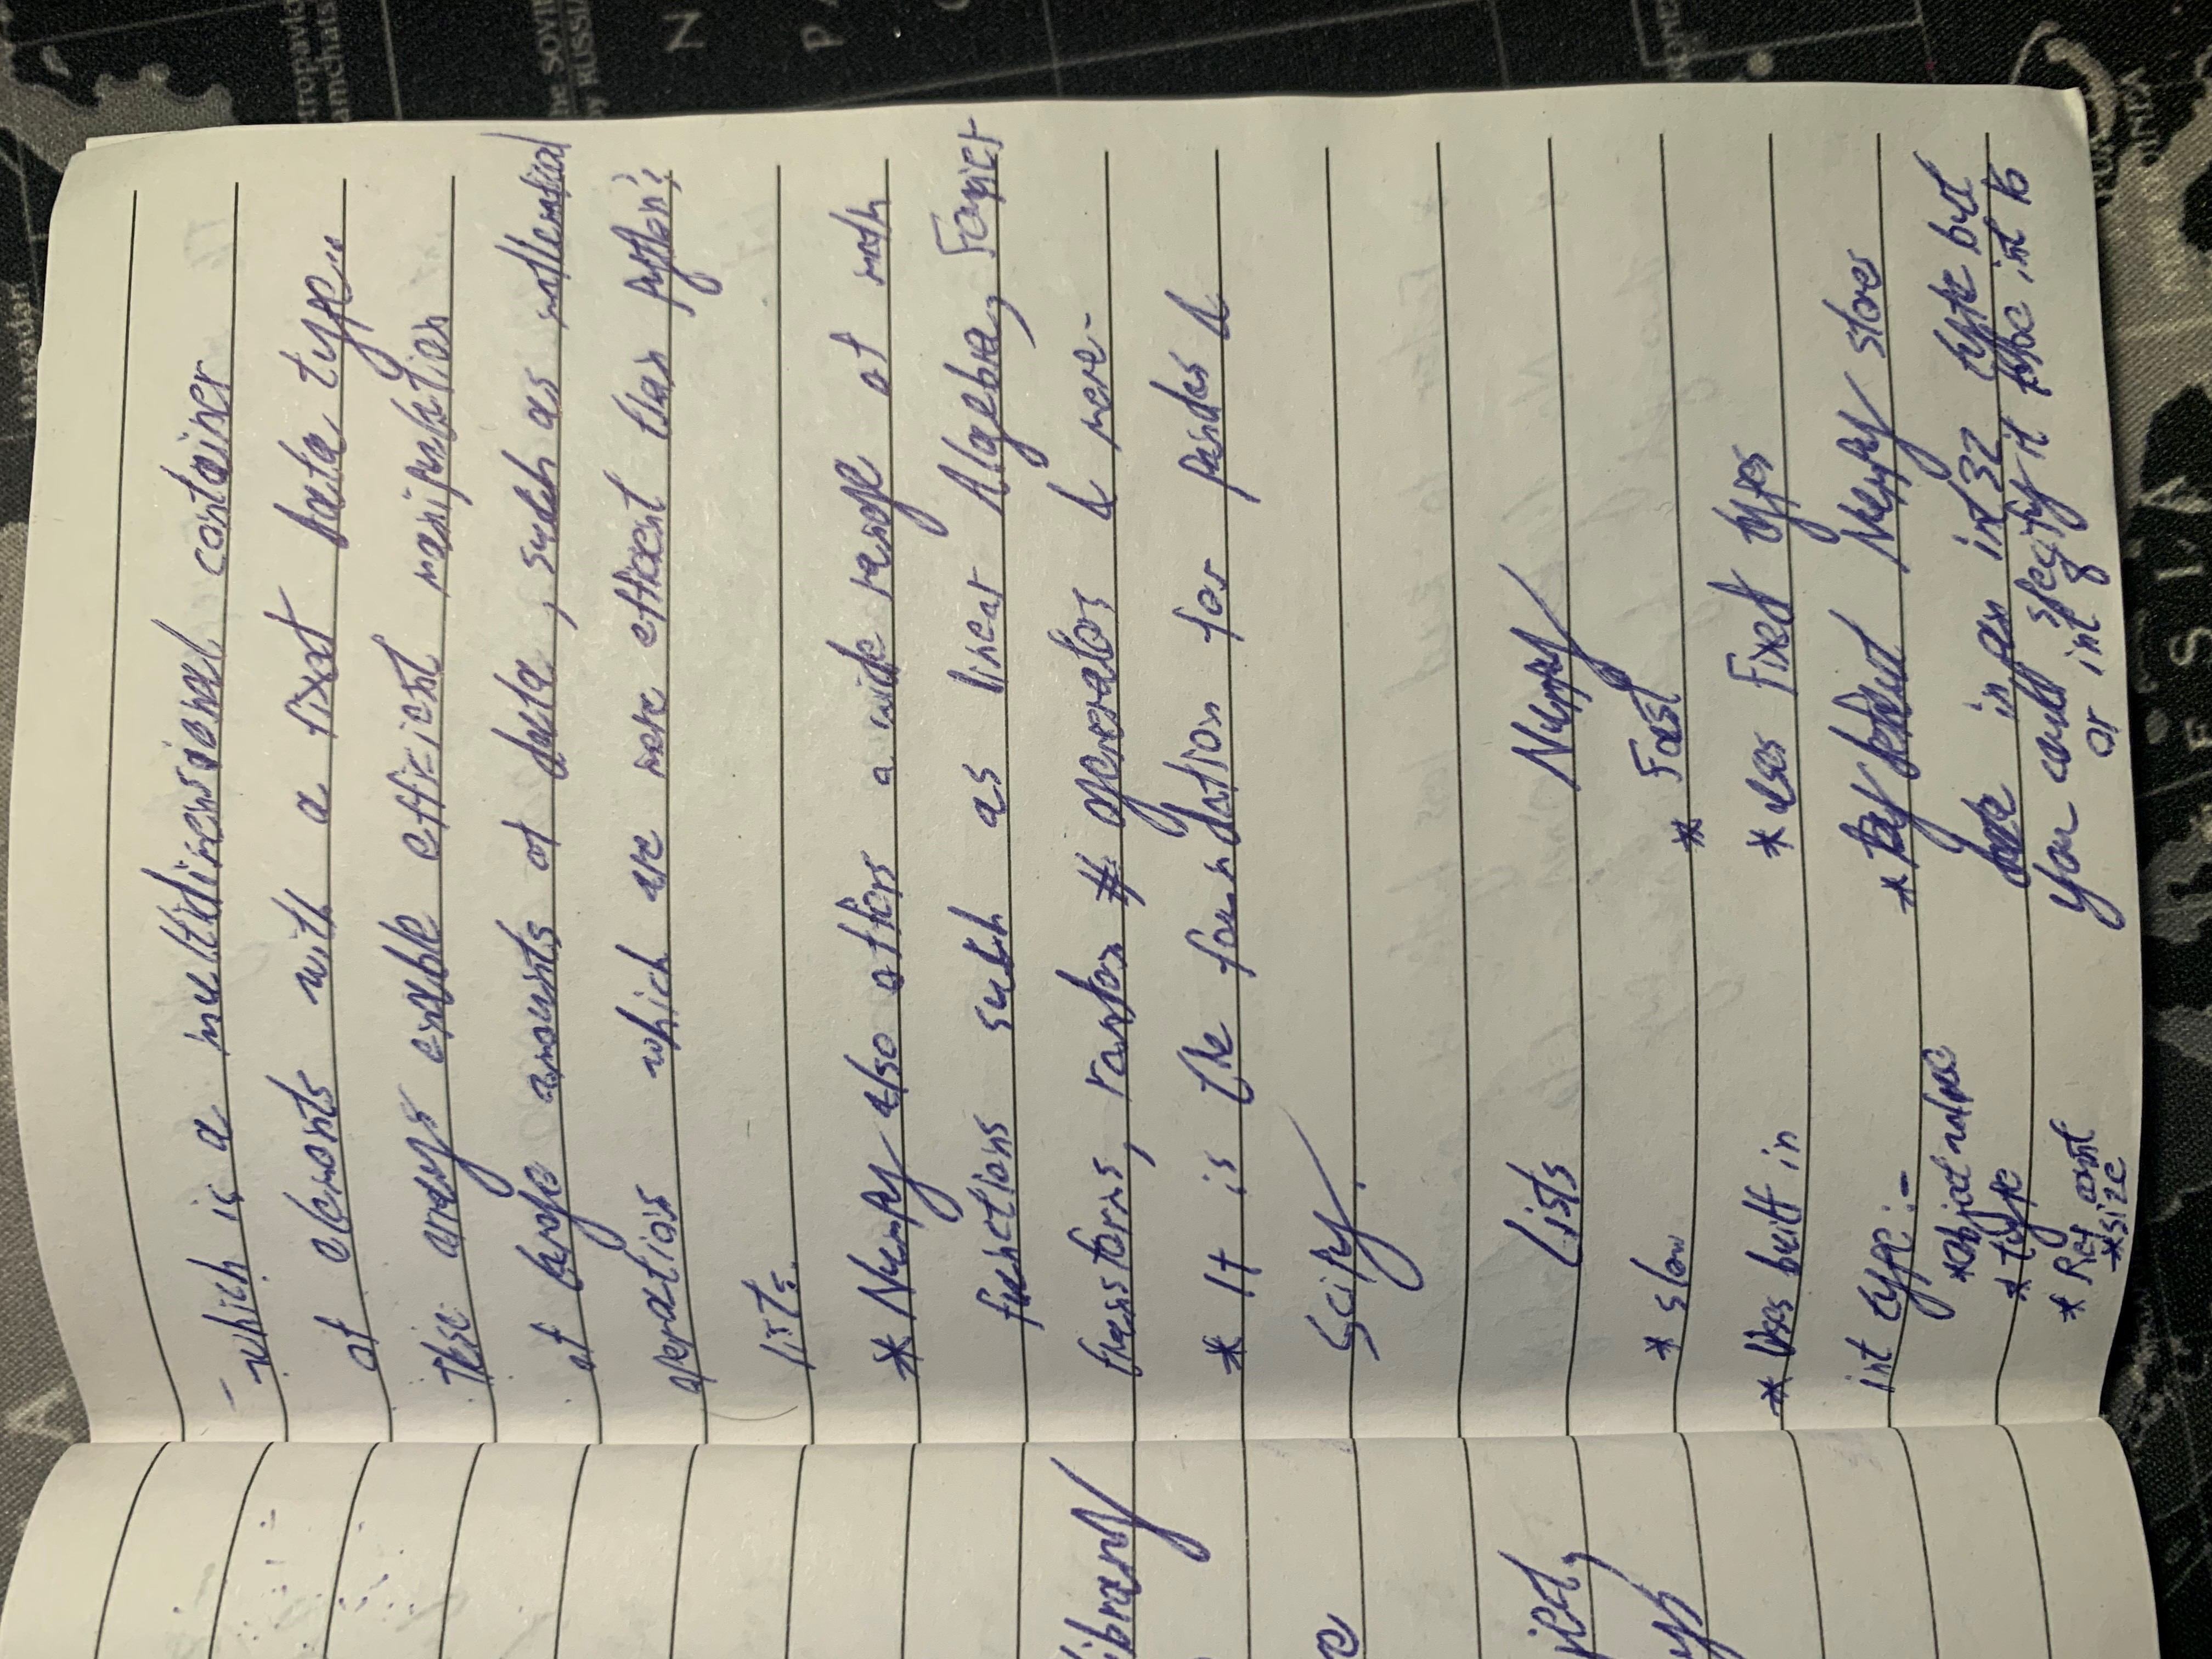 which is a multidimensional container
of elements with a fixed data type..
These arrays enable efficient manipulation
of large amounts of data, such as mathematical
operations which are more efficent than python's
lists.
* Numpy also offers a wide range of math
functions such as linear Algebra, Fourier
transforms, random # generators & more.
* It is the foundation for pandas &
scipy.
Lists Numpy
* slow * Fast
* Uses built in * uses Fixed types
int type:- * By default Numpy stores
*Object value data in an int32 type but
* type you could specify it to be int 16
* Ref count or int
*size
library
ject,